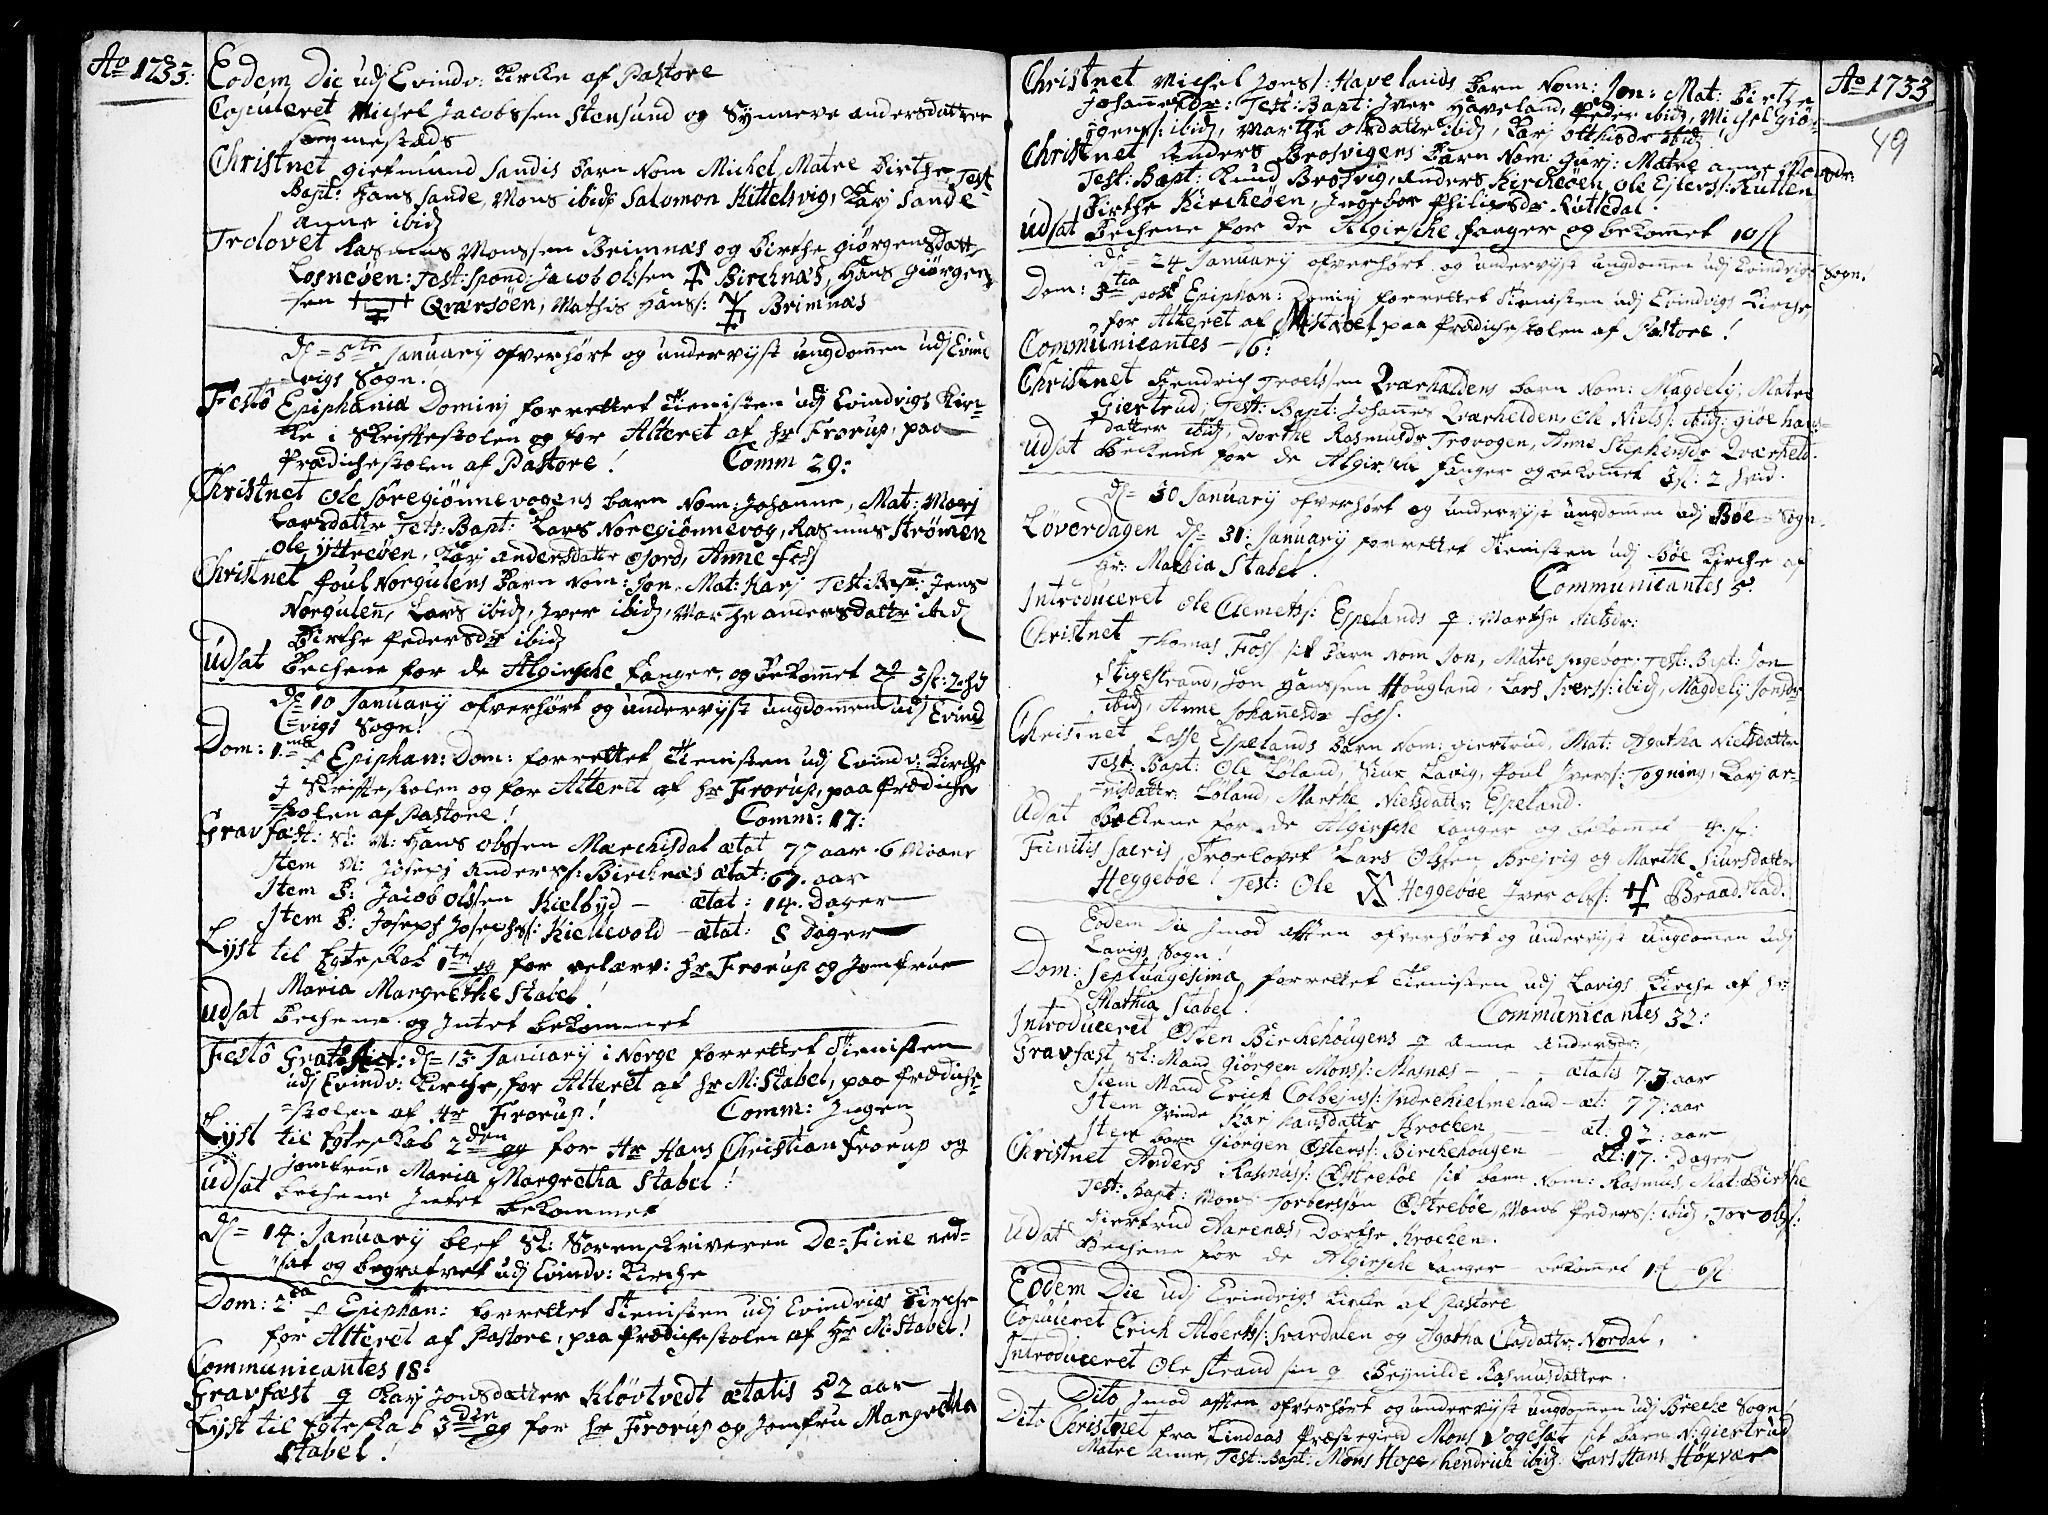 Ao 1733:
Eodem Die udj Evindv: Kirke af Pastore
Copuleret Michel Jacobssen Stensund og Synneve Andersdatter
sammestæds
Christnet giefmund Sandis barn Nom Michel, Matre Birthe, Test
Bapt: Hans Sande, Mons ibid: Salomon Kittelsvig, Karj Sande
Anne ibidj
Trolovet Rasmus Monssen Brimnæs og Birthe Giørgensdatt
Losneøen: Test: Spond: Jacob Olssen Bircknæs, Hans Giørgens
sen Qværsøen, Mathis Hans: Brimnæs
d= 5te January ofverhørt og underviist ungdommen udj Evind
vigs Sogn.
Festô Epiphaniæ Dominj forrettet Tienisten udj Evindvigs Kir-
ke i Skriftestolen og for Alteret af Hr Frorup, paa
Prædichestolen af Pastore! Comm 29:
Christnet Ole Søregiønnevogens barn Nom: Johanne, Mat: Marj
Larsdattr Test: Bapt: Lars Noregiønnevog, Rasmus Strømen
Ole Yttreøen, Karj Andersdattr Ofjord, Anne Foss
Christnet Poul Norgulens barn Nom: Jon. Mat: Karj Test: Bapt: Jens
Norgulen, Lars ibidj, Iver ibidj, Marthe Andersdattr ibidj
Birthe Pedersdr ibidj
Udsat Bechene for de Algirsche Fanger, og Bekommet
d= 10 January ofverhørt og underviist ungdommen udj Evind
vigs Sogn!
Dom: 1ma p Epiphan: Dom: forrettet Tienisten udj Evindv: Kirche
I Skriftestolen og for Alteret af Hr Frorup, paa Prædiche
stolen af Pastore! Comm: 17:
Gravfæst: Sl: M: Hans Olssen Mærchisdal ætat 77 aar 6 Moane
Item M: Joseph Anderss: Bircknæs ætat: 67. aar
Item B: Jacob Olssen Kielbyd — ætat: 14. Dager
Item B: Joseph Josephs: Kiellevold — ætat: 8 Dager
Lyst til Egteskab 1te gg for velærv: Hr Frorup og Jomfrue
Maria Margrethe Stabel!
Udsat Bechene og Intet bekommet
Festô d= 13 January i Norge forrettet Tienisten
udj Evindv: Kirche, for Alteret af Hr M: Stabel, paa Prædiche-
stolen af Hr Frorup! Comm: Ingen
Lyst til Egteskab 2den gg for Hr Hans Christian Frorup og
Jomfrue Maria Margretha Stabel!
Udsat bechene Intet bekommet
d= 14 January blef Sl: Sorenskriveren De=Fine ned=
sat og begrafvet udj Evindv: Kirche
Dom: 2da p Epiphan: forrettet Tienisten udj Evindvigs Kirche
for Alteret af Pastore, paa Prædichestolen af Hr M: Stabel!
Communicantes 18:
Gravfæst q Karj Jonsdatter Kløvtvedt ætatis 52 aar
Lyst til Egteskab 3die gg for Hr Frorup og Jomfru Margretha
Stabel!
Ao 1733
49
Christnet Michel Jons: Havelands Barn Nom: Jon: Mat: Birthe
Johannesdr: Test: Bapt: Iver Haveland, Peder ibidj, Michel Giør-
gens: ibidj, Marthe Olsdattr ibidj, Karj Otthisdr ibidj!
Christnet Anders Brosvigens Barn Nom: Gurj: Matre Anne Monsdr:
Test: Bapt: Knud Brosvig, Anders Kircheøen, Ole Rutten
Birthe Kircheøen, Ingebor Philipsdr Rutledal.
Udsat Bechene for de Algirsche fanger og bekomet 10 sl
d= 24 January ofverhørt og underviist ungdommen udj Evindvigs Sogn.
Dom: 3tia post Epiphan: Dominj forrettet Tienisten udj Evindvigs Kirche
for Alteret af M Stabel, paa Prædichestolen af Pastore!
Communicantes — 16:
Christnet Hendrich Troelssen Qværhaldens barn Nom: Magdelj, Matre
Giertrud, Test: Bapt: Johannes Qværhelden, Ole Niels: ibidj: Hans-
datter ibidj, Dorthe Rasmusdr Trovogen, Anne Stephensdr Qværheld.
Udsat Bechene for de Algirsche fanger og bekomet 3 sl: 2 hvid.
d= 30 January ofverhørt og underviist ungdommen udj Bøe Sogn.
Løverdagen d= 31: January forrettet Tienisten udj Bøe Kirche af
Hr: Mathia Stabel. Communicantes 5:
Introduceret Ole Clemets: Espelands q: Marthe Nielsdr:
Christnet Thomas Foss sit Barn Nom Jon, Matre Ingebor: Test: Bapt: Jon
Stigestrand, Jon Hanssen Hougland, Lars Ivers: ibidj, Magdelj: Jonsdr
ibidj, Anne Johannesdr Foss.
Christnet Lasse Espelands Barn Nom: Giertrud, Mat: Agatha Nielsdatter
Test: Bapt: Ole Løland, Siur Lavig, Poul Ivers: Togning, Karj Ar-
nisdattr: Løland, Marthe Nielsdattr Espeland.
Udsat Bekkene for de Algirsche fanger og bekomet — 4. sl:
Finitis Sacris, Troelovet Lars Olssen Brejvig og Marthe Siursdatter
Heggebøe! Test: Ole Heggebøe Iver Ols: Braadstad.
Eodem Die Imod Aften ofverhørt og underviist ungdommen udj
Lavigs Sogn!
Dom: Septuagesima forrettet Tienisten udj Lavigs Kirche af Hr
Mathia Stabel. Communicantes 32:
Introduceret Østen Birchehougens q Anne Andersdr:
Gravfæst Sl: Mand Giørgen Mons: Masnæs — ætatis 73 aar
Item Mand Erich Colbejns: Indrehielmeland — æt: 77: aar
Item Qvinde Karj Hansdattr Krocken — æt: 92: aar
Item barn Giørgen Østens: Birchehougen — æt: 17: Dager
Christnet Anders Rasmuss: Østrebøe sit barn Nom: Rasmus, Mat: Birthe
Test: Bapt: Mons Torberssøn Østrebøe, Mons Peders: ibidj, Tor Ols:
Giertrud Aarenæs, Dorthe Krocken.
Udsat Bechene for de Algirsche fanger bekomet
Eodem Die udj Evindvigs Kirke af Pastore
Copuleret Erich Alberts: Svardalen og Agatha Clasdattr: Nordal,
Introduceret Ole Strand sin q Beynilde Rasmusdatter.
Dito Imod Aften ofverhørt og underviist ungdommen udj Breche Sogn!
Dito Christnet fra Lindaas Præstegield Mons Vogeset sit barn N: Giertrud
Matre Anne, Test: Bapt: Mons Hope, Hendrich ibidj: Lars Hans Høxvær